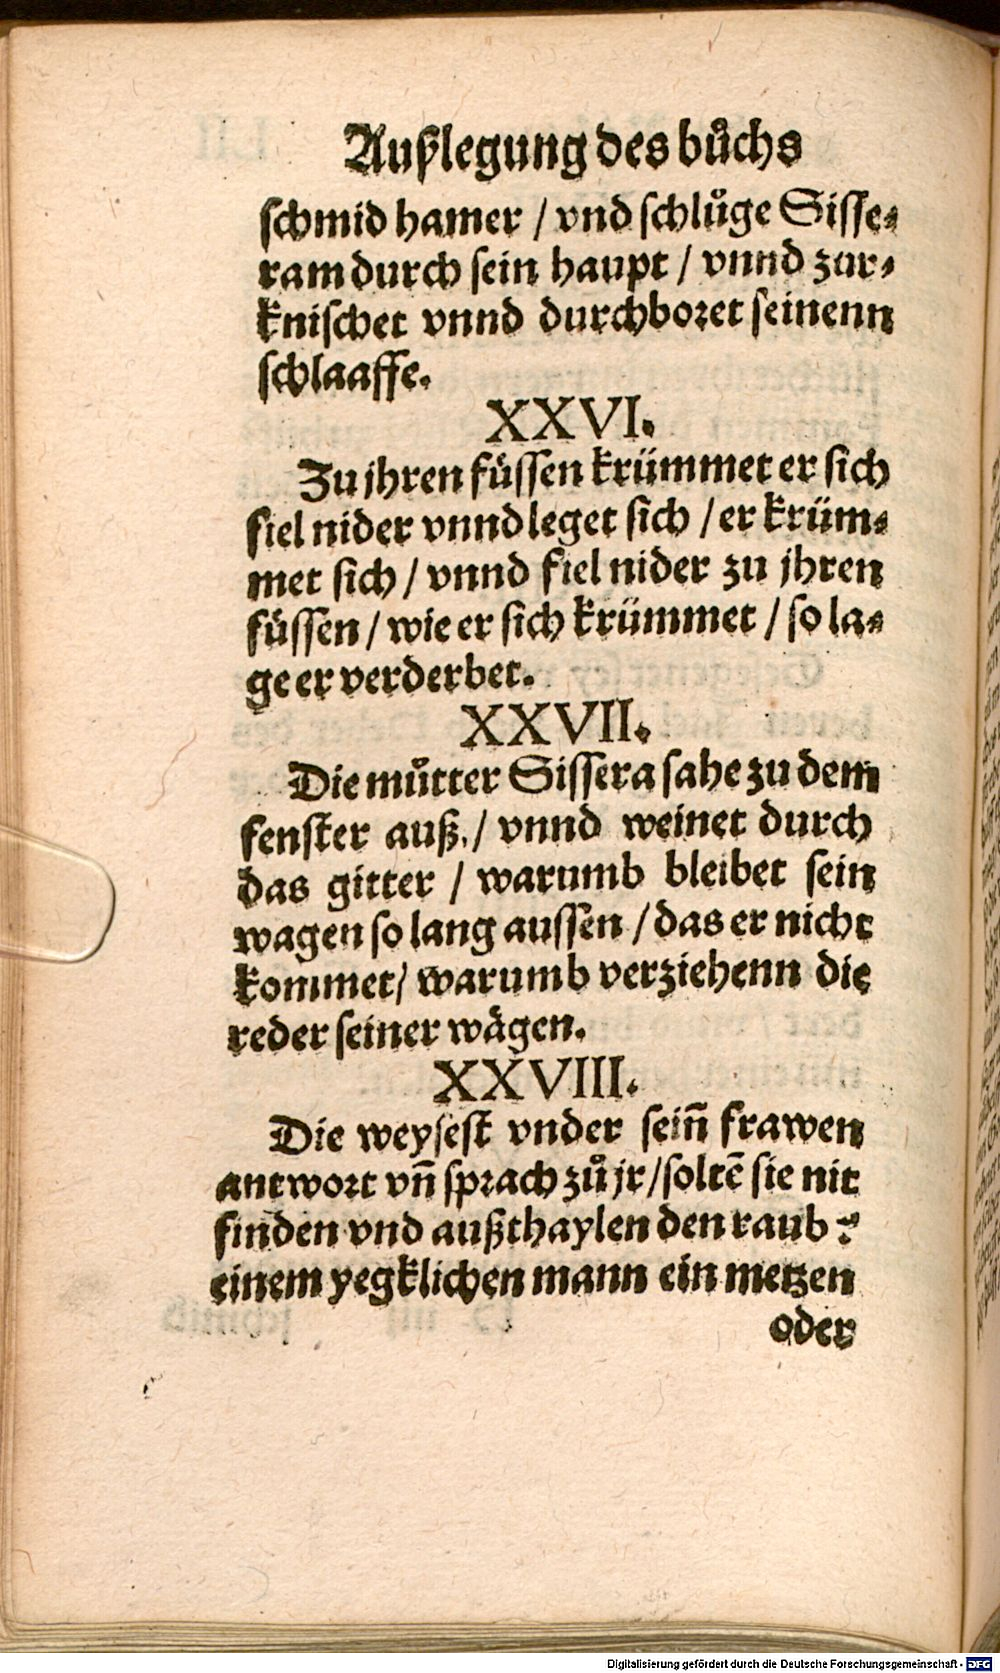 Außlegung des bůchs
schmid hamer / vnd schlůge Sisse⸗
ram durch sein haupt / vnnd zur⸗
knischet vnnd durchboret seinenn
schlaaffe.
XXVI.
Zu jhren füssen krümmet er sich
fiel nider vnnd leget sich / er krüm⸗
met sich / vnnd fiel nider zu jhren
füssen / wie er sich krümmet / so la⸗
ge er verderbet.
XXVII.
Die můtter Sissera sahe zu dem
fenster auß / vnnd weinet durch
das gitter / warumb bleibet sein
wagen so lang aussen / das er nicht
kommet / warumb verziehenn die
reder seiner wägen.
XXVIII.
Die weysest vnder sein̄ frawen
antwort vn̄ sprach zů jr / soltē sie nit
finden vnd außthaylen den raub?
einem yegklichen mann ein metzen
oder
Digitalisierung gefördert durch die Deutsche Forschungsgemeinschaft - DFG